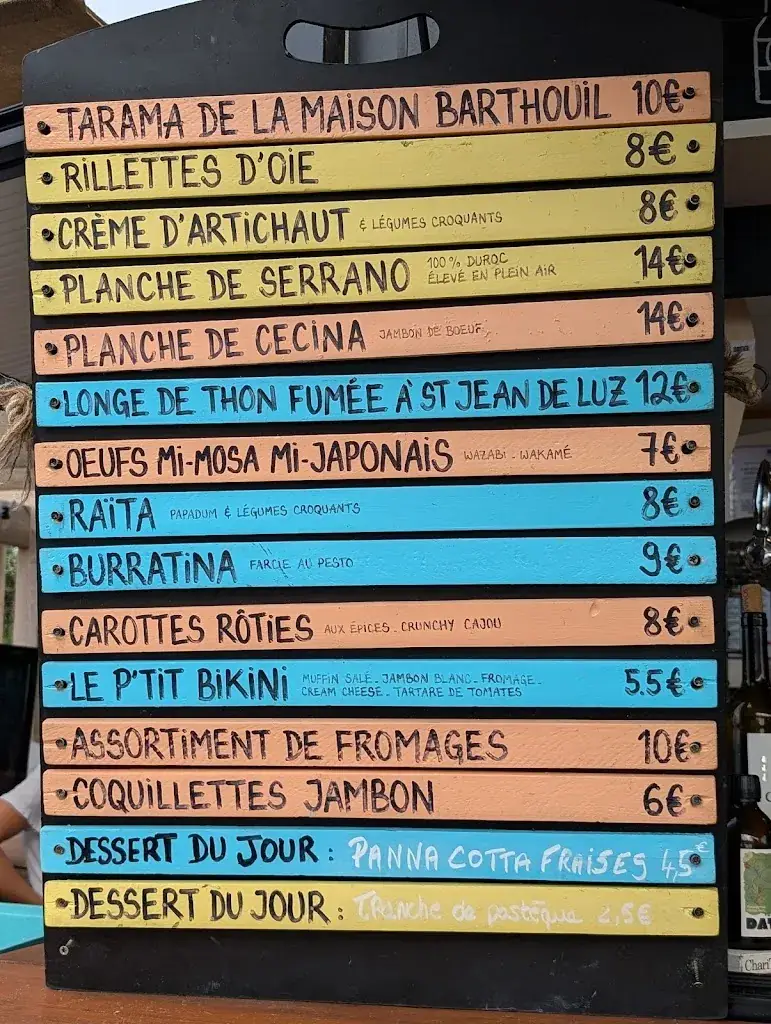 TARAMA DE LA MAISON BARTHOUIL 10€
RILLETTES D'OIE 8€
CRÈME D'ARTICHAUT & LÉGUMES CROQUANTS 8€
PLANCHE DE SERRANO 100% DUROC ÉLEVÉ EN PLEIN AIR 14€
PLANCHE DE CECINA JAMBON DE BOEUF 14€
LONGE DE THON FUMÉE À ST JEAN DE LUZ 12€
OEUFS Mi-MOSA Mi-JAPONAIS WAZABI - WAKAMÉ 7€
RAÏTA PAPADUM & LÉGUMES CROQUANTS 8€
BURRATINA FARCIE AU PESTO 9€
CAROTTES RÔTIES AUX ÉPICES - CRUNCHY CAJOU 8€
LE P'TIT BIKINI MUFFIN SALÉ - JAMBON BLANC - FROMAGE - 5.5€
CREAM CHEESE - TARTARE DE TOMATES
ASSORTIMENT DE FROMAGES 10€
COQUILLETTES JAMBON 6€
DESSERT DU JOUR : PANNA COTTA FRAISES 4,5€
DESSERT DU JOUR : Tranche de pastèque 2,5€